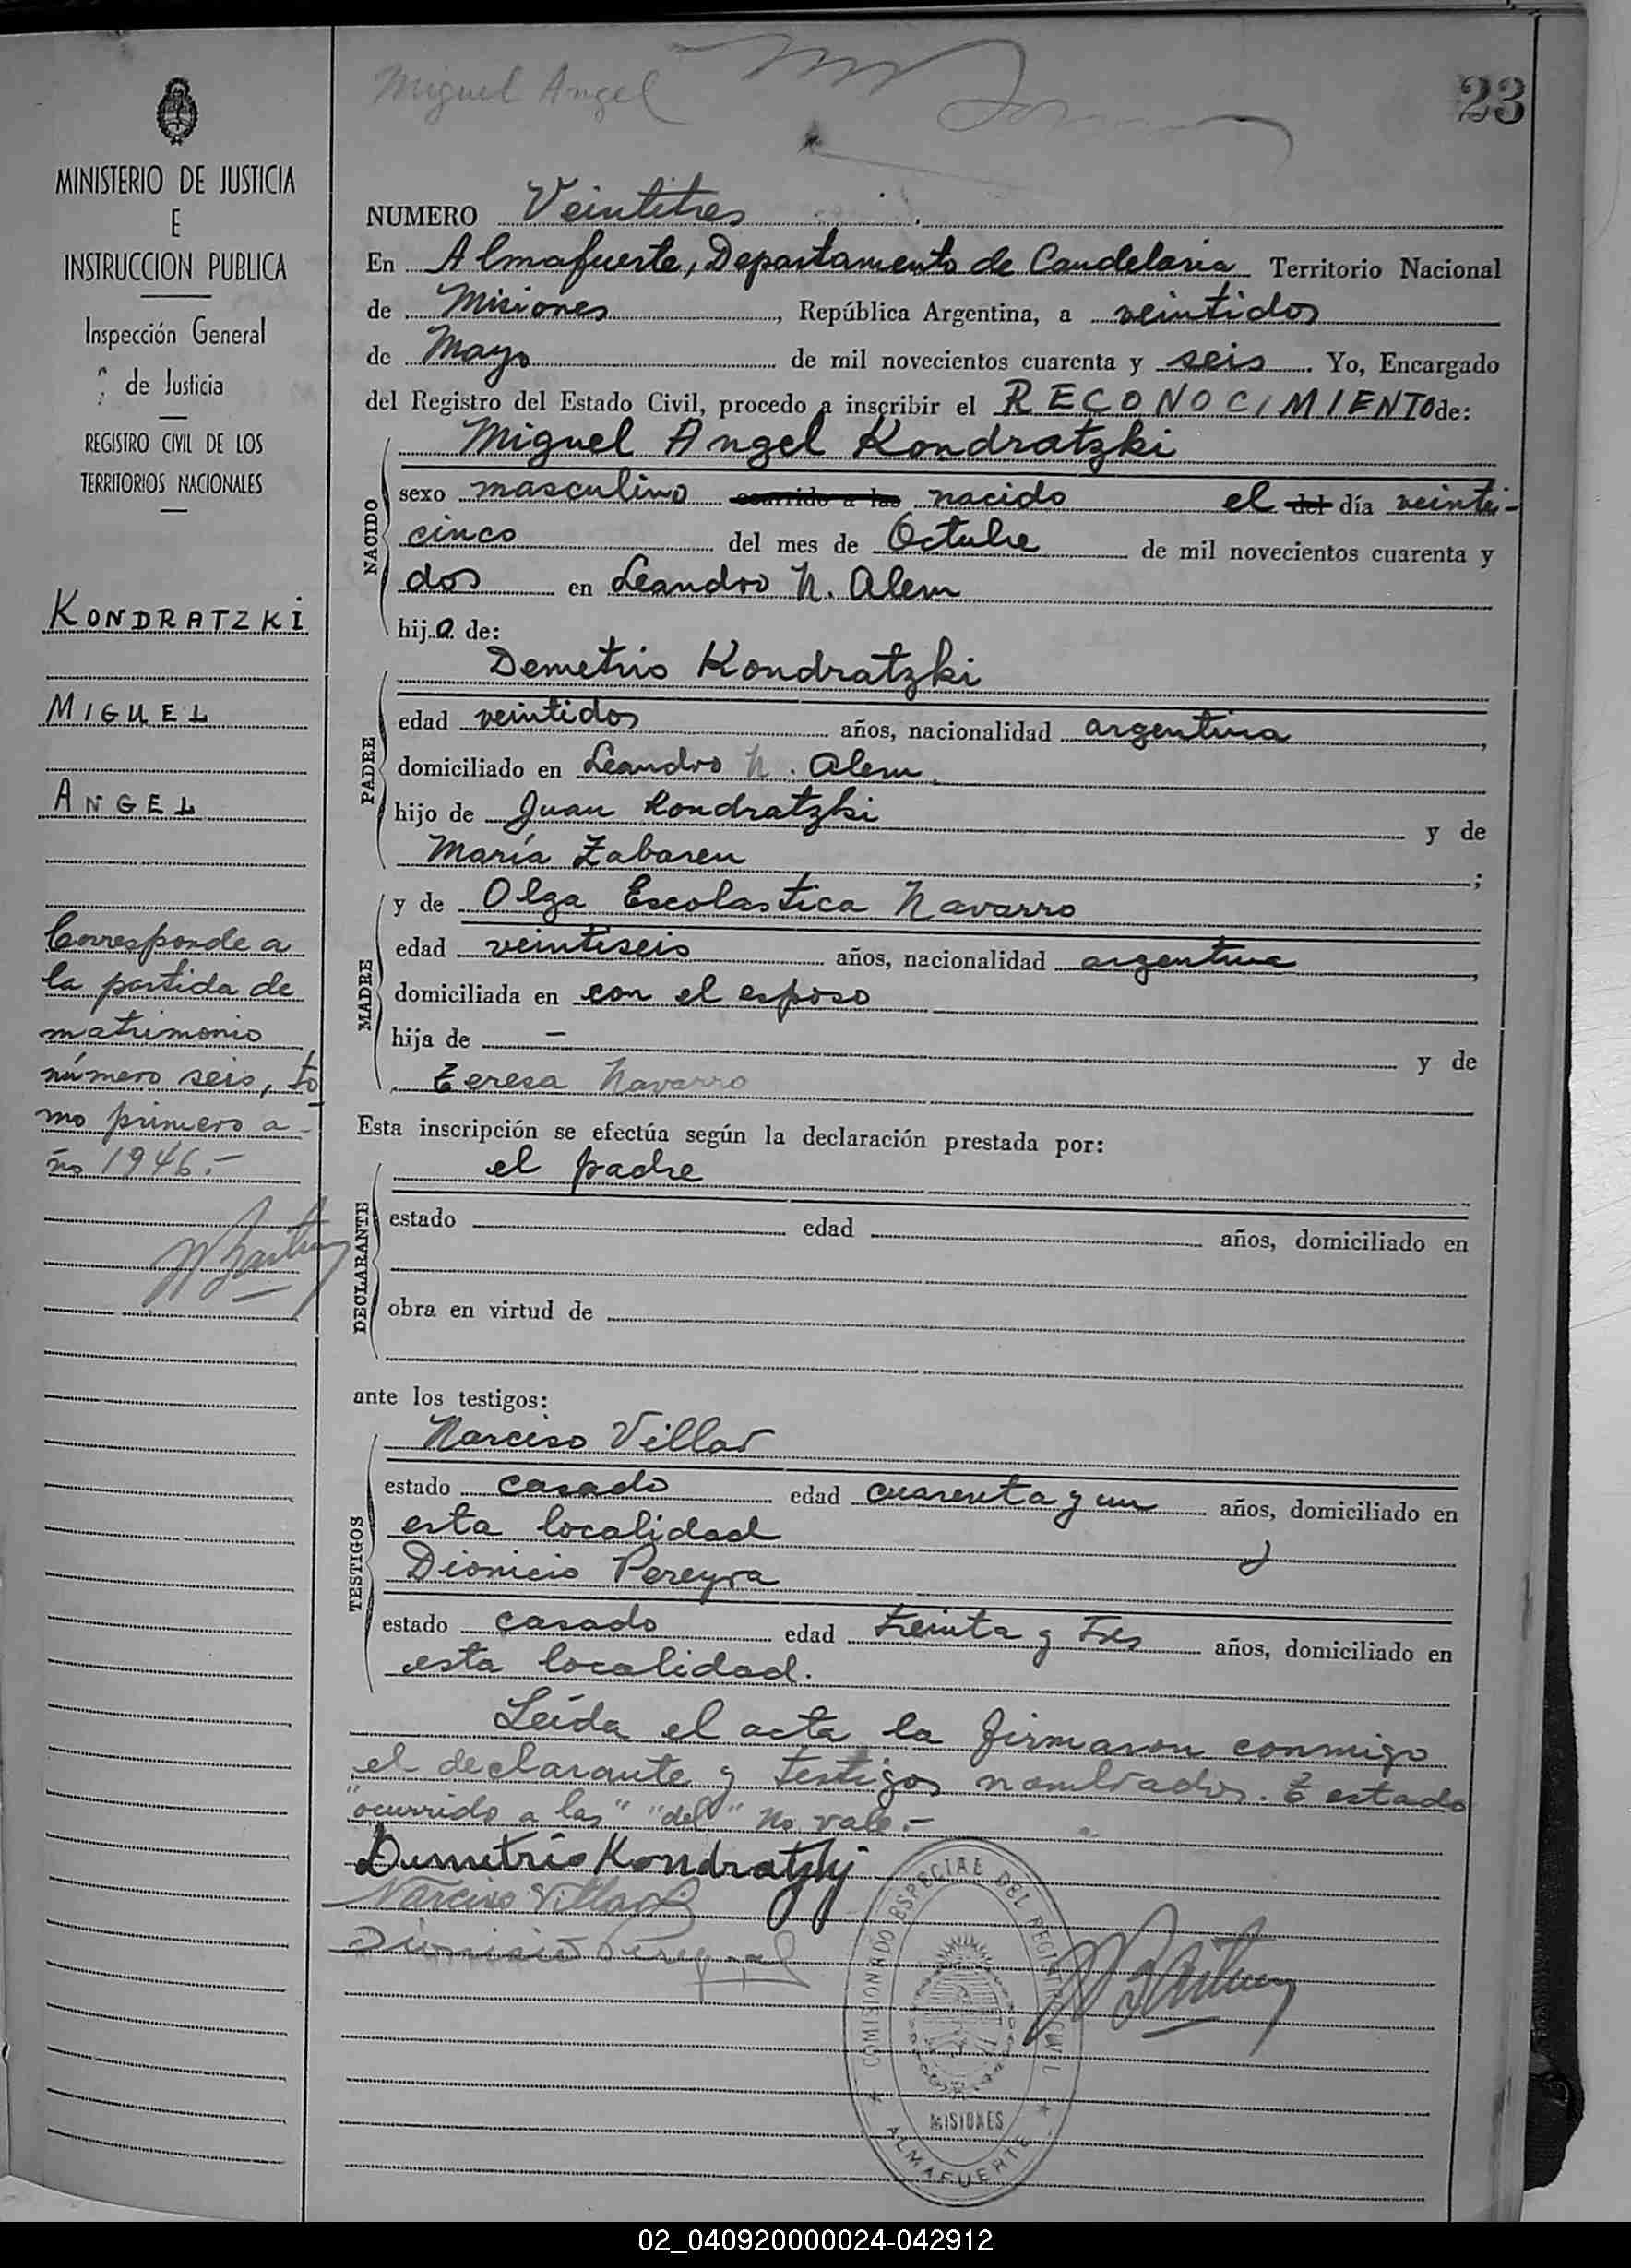 Miguel Angel
23
MINISTERIO DE JUSTICIA
E
INSTRUCCION PUBLICA
Inspección General
de Justicia
REGISTRO CIVIL DE LOS
TERRITORIOS NACIONALES
KONDRATZKI
MIGUEL
ANGEL
Corresponde a
la partida de
matrimonio
número seis, to
mo primero a-
ño 1946.-
NUMERO Veintitres
En Almafuerte, Departamento de Candelaria Territorio Nacional
de Misiones, República Argentina, a veintidos
de Mayo de mil novecientos cuarenta y seis. Yo, Encargado
del Registro del Estado Civil, procedo a inscribir el RECONOCIMIENTO de:
NACIDO
Miguel Angel Kondratzki
sexo masculino ocurrido a las nacido el del día veinti-
cinco del mes de Octubre de mil novecientos cuarenta y
dos en Leandro N. Alem
hijo de:
PADRE
Demetrio Kondratzki
edad veintidos años, nacionalidad argentina,
domiciliado en Leandro N. Alem.
hijo de Juan Kondratzki y de
María Zabaren;
MADRE
y de Olga Escolastica Navarro
edad veintiseis años, nacionalidad argentina,
domiciliada en con el esposo
hija de - y de
Teresa Navarro
Esta inscripción se efectúa según la declaración prestada por:
DECLARANTE
el padre
estado edad años, domiciliado en
obra en virtud de
ante los testigos:
TESTIGOS
Narciso Villar
estado casado edad cuarenta y un años, domiciliado en
esta localidad y
Dionicio Pereyra
estado casado edad treinta y tres años, domiciliado en
esta localidad.
Leída el acta la firmaron conmigo
el declarante y testigos nombrados. E estado
"ocurrido a las" "del" no vale.-
Dumetrio Kondratzkj
Narciso Villar
Dionisio Pereyra
COMISIONADO ESPECIAL DEL REGISTRO CIVIL
MISIONES
ALMAFUERTE
02_040920000024-042912